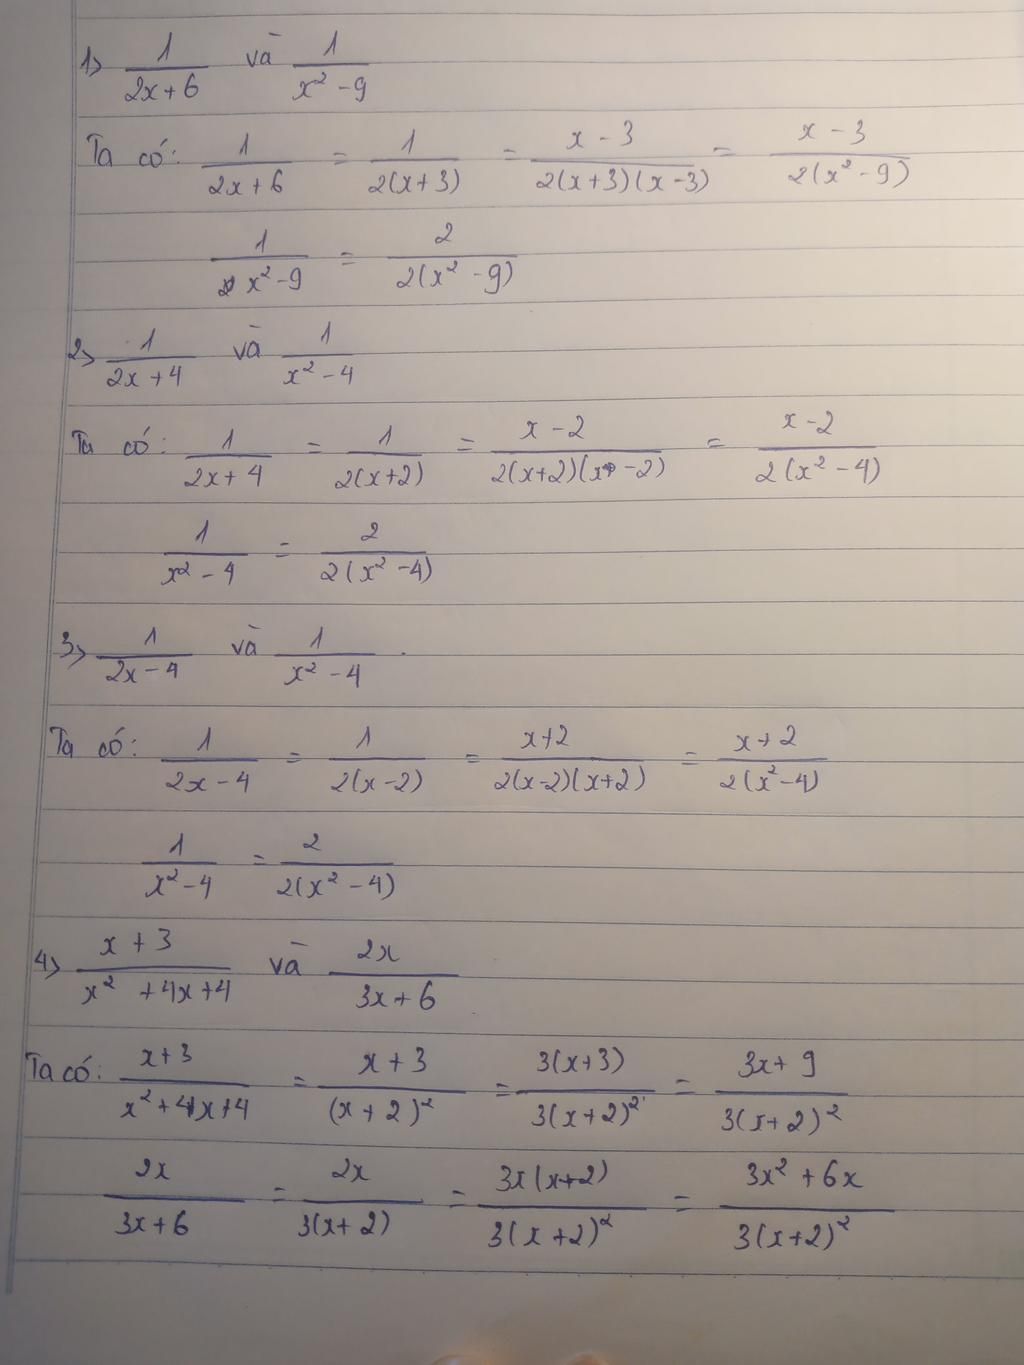 1> 1/(2x+6) và 1/(x² - 9)
Ta có: 1/(2x+6) = 1/(2(x+3)) = (x-3)/(2(x+3)(x-3)) = (x-3)/(2(x²-9))
1/(x²-9) = 2/(2(x²-9))
2> 1/(2x+4) và 1/(x²-4)
Ta có: 1/(2x+4) = 1/(2(x+2)) = (x-2)/(2(x+2)(x-2)) = (x-2)/(2(x²-4))
1/(x²-4) = 2/(2(x²-4))
3> 1/(2x-4) và 1/(x²-4) .
Ta có: 1/(2x-4) = 1/(2(x-2)) = (x+2)/(2(x-2)(x+2)) = (x+2)/(2(x²-4))
1/(x²-4) = 2/(2(x²-4))
4> (x+3)/(x²+4x+4) và 2x/(3x+6)
Ta có: (x+3)/(x²+4x+4) = (x+3)/(x+2)² = 3(x+3)/(3(x+2)²) = (3x+9)/(3(x+2)²)
2x/(3x+6) = 2x/(3(x+2)) = 3x(x+2)/(3(x+2)²) = (3x²+6x)/(3(x+2)²)